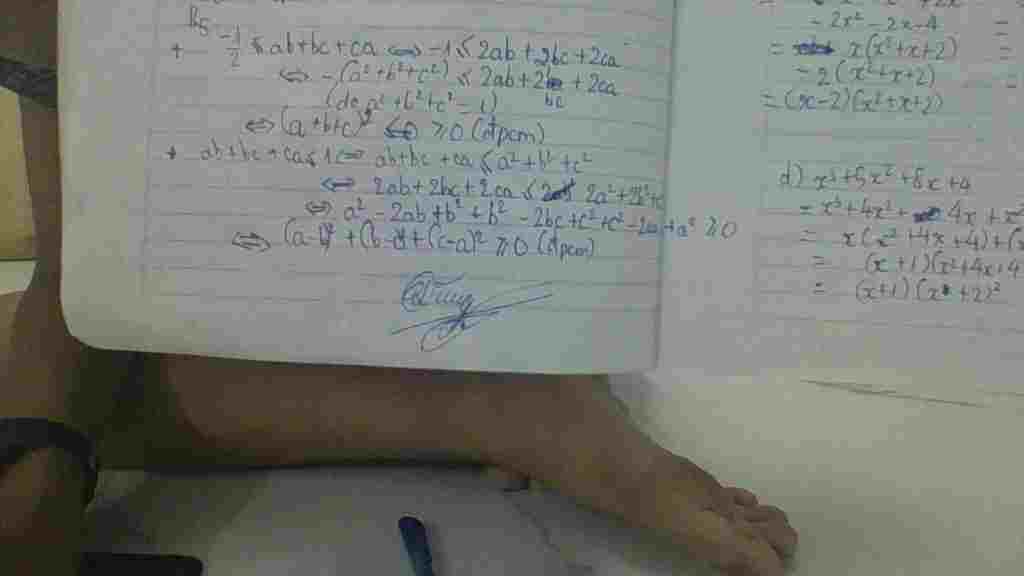 B5
+ -1/2 ≤ ab+bc+ca ⇔ -1 ≤ 2ab+2bc+2ca
⇔ -(a²+b²+c²) ≤ 2ab+2bc+2ca
(do a²+b²+c²=1)
⇔ (a+b+c)² ≥ 0 (đpcm)
+ ab+bc+ca ≤ 1 ⇔ ab+bc+ca ≤ a²+b²+c²
⇔ 2ab+2bc+2ca ≤ 2a²+2b²+
⇔ a²-2ab+b²+b²-2bc+c²+c²-2ca+a² ≥ 0
⇔ (a-b)²+(b-c)²+(c-a)² ≥ 0 (đpcm)
-2x²-2x-4 =
= x(x²+x+2)
-2(x²+x+2)
= (x-2)(x²+x+2)
d) x³+5x²+8x+4
= x³+4x²+4x+x²
= x(x²+4x+4)+(x
= (x+1)(x²+4x+4
= (x+1)(x+2)²